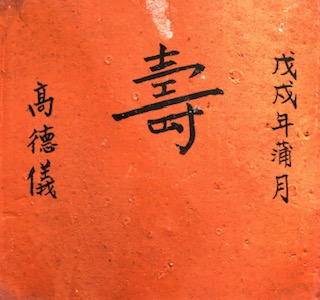 戊戌年蒲月
壽
高德儀